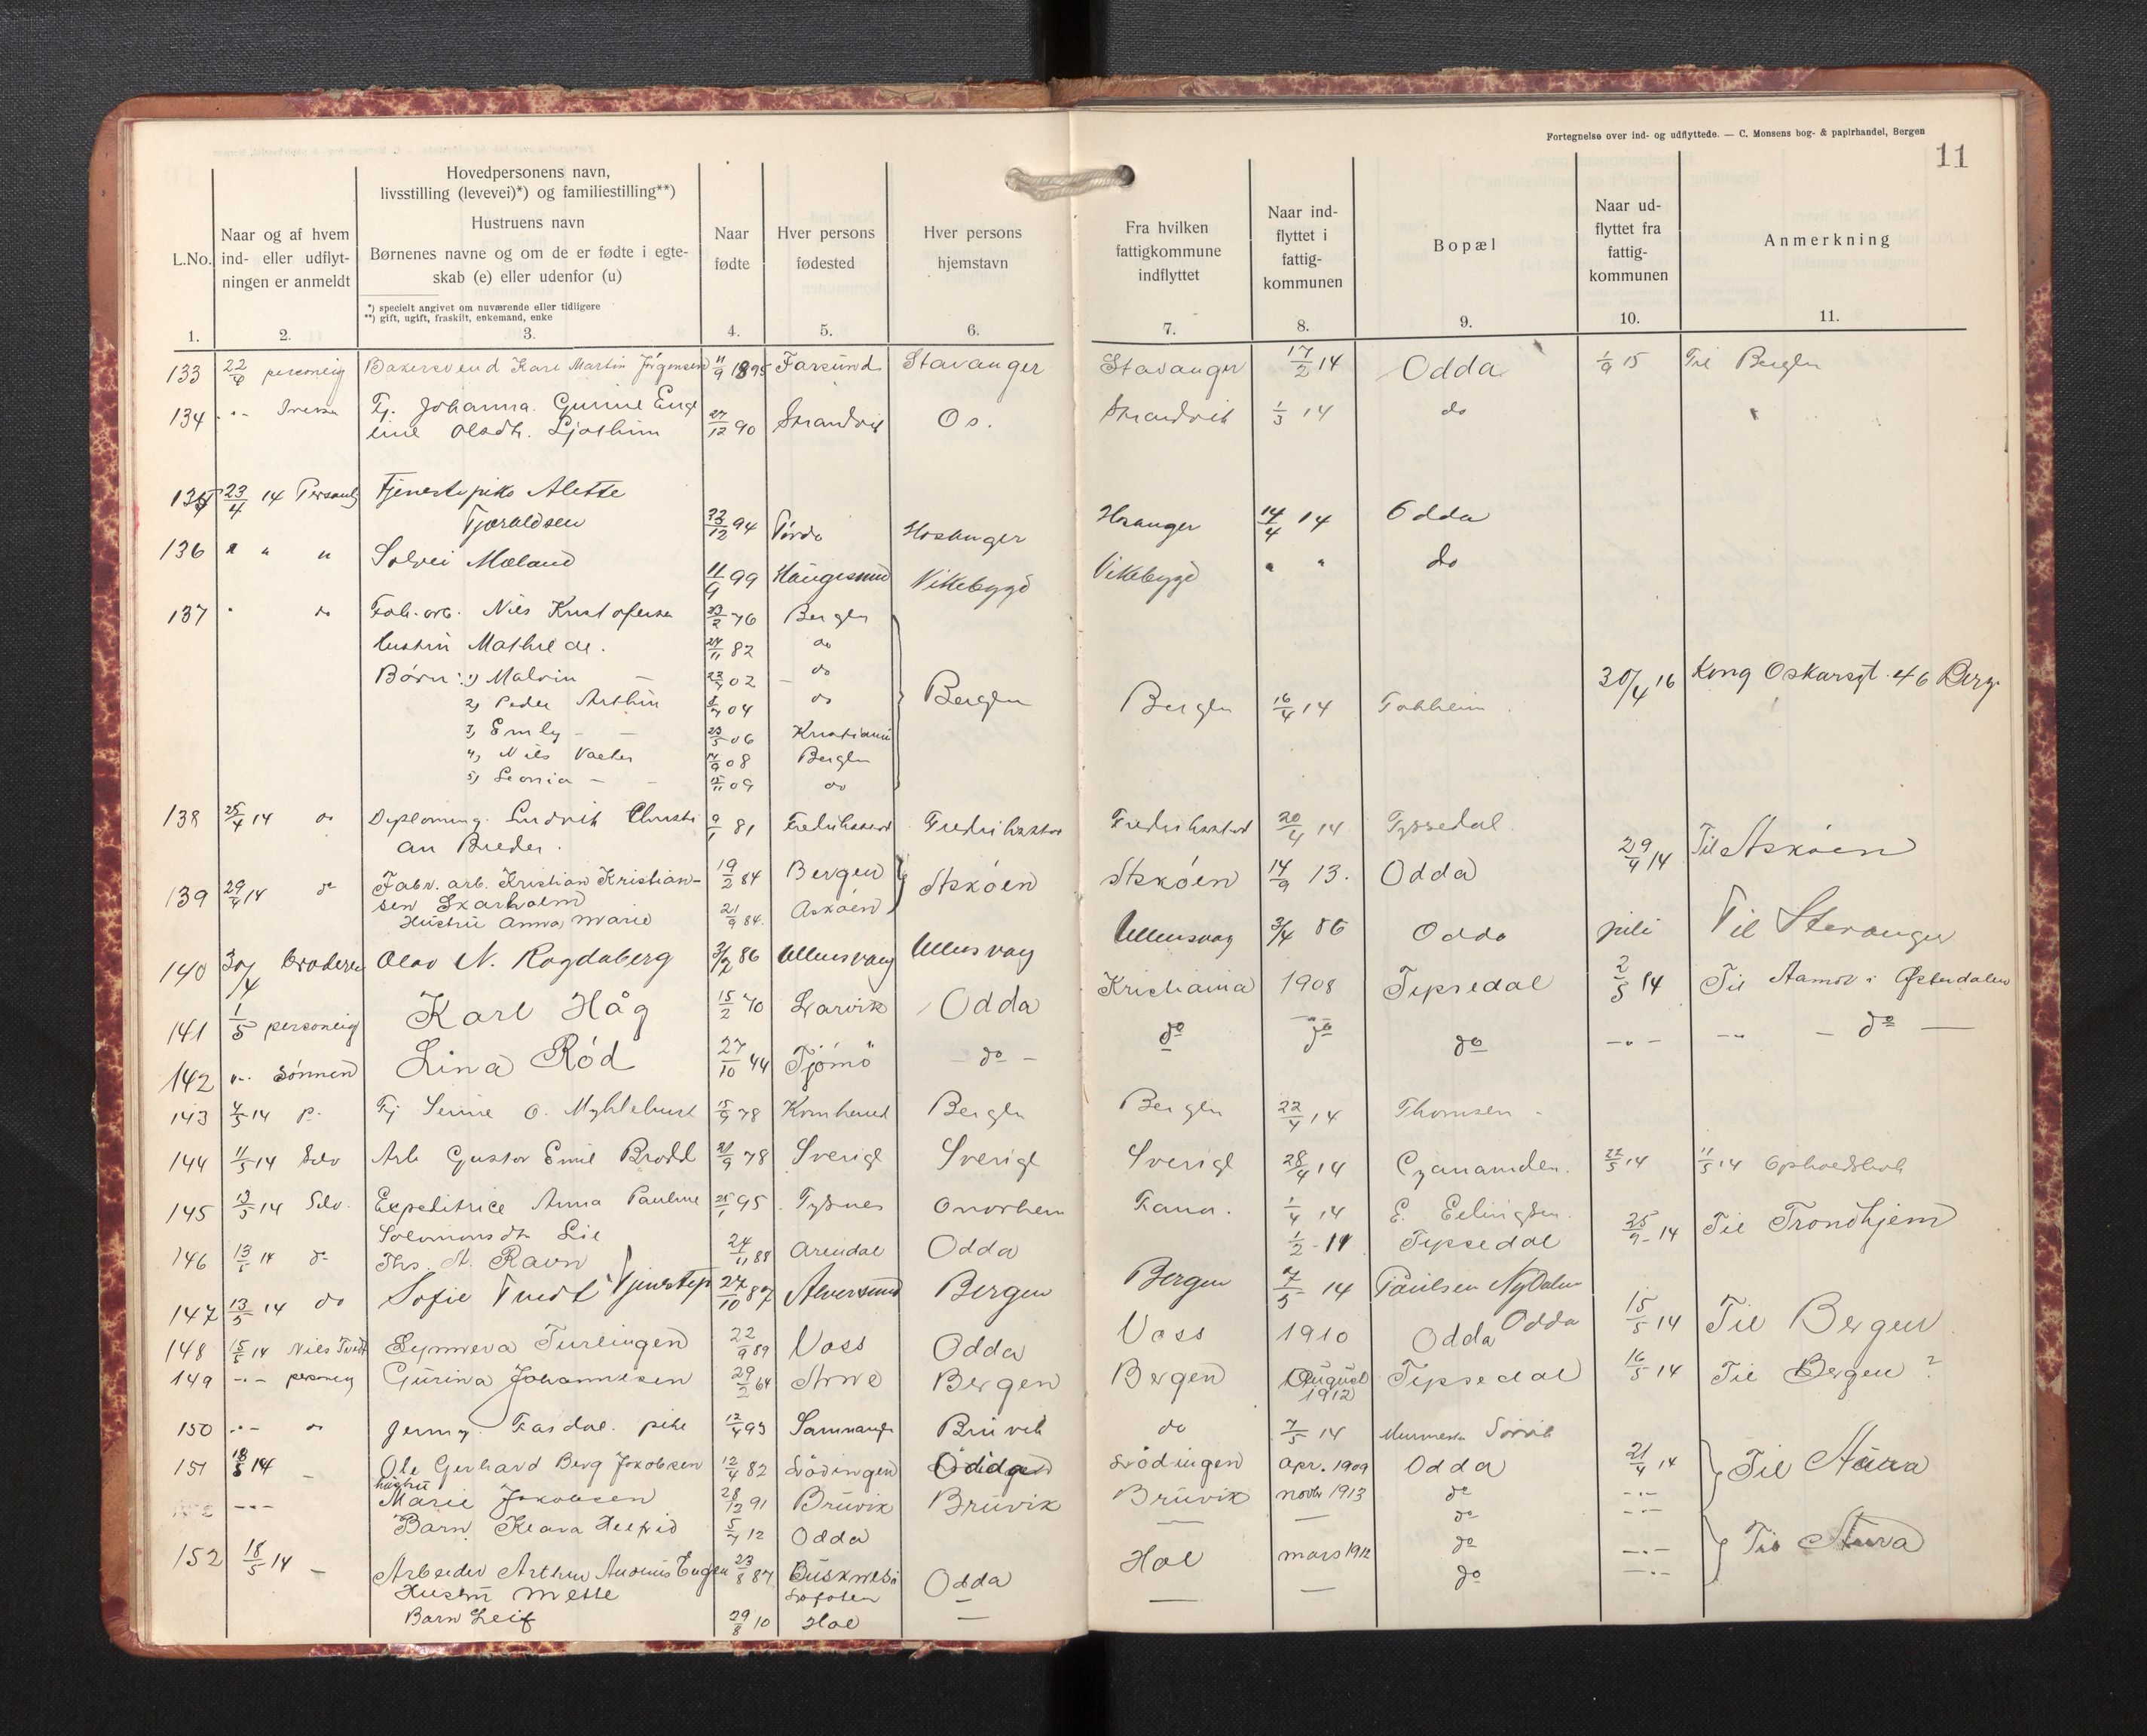 Fortegnelse over ind- og udflyttede. — C. Monsens bog- & papirhandel, Bergen
11
L.No.
1.
Naar og af hvem
ind- eller udflyt-
ningen er anmeldt
2.
Hovedpersonens navn,
livsstilling (levevei)*) og familiestilling**)
Hustruens navn
Børnenes navne og om de er fødte i egte-
skab (e) eller udenfor (u)
*) specielt angivet om nuværende eller tidligere
**) gift, ugift, fraskilt, enkemand, enke
3.
Naar
fødte
4.
Hver persons
fødested
5.
Hver persons
hjemstavn
6.
Fra hvilken
fattigkommune
indflyttet
7.
Naar ind-
flyttet i
fattig-
kommunen
8.
Bopæl
9.
Naar ud-
flyttet fra
fattig-
kommunen
10.
Anmerkning
11.
133 22/4 personlig Bakersvend Karl Martin Jørgensen 11/9 1895 Farsund Stavanger Stavanger 17/2 14 Odda 1/9 15 Til Bergen
134 Tj. Johanna Gurine Eng
eline Olsdtr. 27/12 90 Strandvik Os. Strandvik 1/3 14 do
135 23/4 14 Personlig Tjenestepike Alette
Fjæraldsen 94 Hosanger Hosanger 14/4 14 Odda
136 " " " Solvei Mæland 11/9 99 Haugesund Vikebygd Vikebygd " " do
137 " do Fab. arb. Nils Kristofersen 76 Bergen
hustru Mathilde. 82 do
Børn: 1) Malvin — 02 — do
2) Peder Arthur 04 do Bergen Bergen 16/4 14 Tokheim 30/4 16 Kong Oskarsgt. 46 Berg.
3) Emily — — 06 Kristiania
4) Nils Valter 08 Bergen
5) Leonia — — 09 do
138 25/4 14 do Diploming. Ludvik Christi
an Breder. 9/1 81 Fredrikstad Fredrikstad Fredrikstad 20/4 14 Tyssedal
139 29/4 14 do Fabr. arb. Kristian Kristian-
sen Skarholm 19/2 84 Bergen Askøen Askøen 14/9 13. Odda 29/4 14 Til Askøen
Hustru Anna Marie 21/9 84 Askøen
140 30/4 broderen Olav N. Ragdaberg 3/2 86 Ullensvang Ullensvang Ullensvang 3/4 86 Odda juli Til Stavanger
141 1/5 personlig Karl Håg 15/2 70 Larvik Odda Kristiania 1908 Tyssedal 2/5 14 Til Aamot i Østerdalen
142 Sønnen Lina Rød 27/10 44 Tjømø — do — do do do — " — — do —
143 4/5 14 p. Tj. O. Myklebust 78 Bergen Bergen 22/4 14 Thomsen
144 11/5 14 Selv Arb Gustav Emil Brodd 21/9 78 Sverige Sverige Sverige 28/4 14 Cyanamiden. 22/5 14 11/5 14
145 13/5 14 Selv. Expeditrice Anna Pauline 95 Tysnes Fana. 1/4 14 E.
Salomonsdtr Lie
146 13/5 14 do Ths. A. Ravn 24/11 88 Arendal Odda 1/2 14 Tyssedal 25/9 14 Til Trondhjem
147 13/5 14 do Sofie Tvedt Tjenestep 27/10 87 Alversund Bergen Bergen 7/5 14 Paulsen Nydalen
Odda 15/5 14 Til Bergen
148 15/5 14 Nils Tvedt Synneva 22/9 89 Voss Odda Voss 1910 Odda
149 -"- personlig Gurina Johannesen 29/2 64 Arne Bergen Bergen August
1912 Tyssedal 16/5 14 Til Bergen ?
150 -"- " Jenny Fasdal. pike 12/4 93 Samnanger Bruvik do 7/5 14
151 18/5 14 — Ole Gerhard Berg Jakobsen 12/4 82 Lødingen Odda Lødingen apr. 1909 Odda 21/4 14 Til
hustru
-"- Marie Jakobsen 28/12 91 Bruvik Bruvik Bruvik novbr 1913 do -"-
Barn Klara 12 Odda — — do -"-
152 18/5 14 — Arbeider Arthur Eugen 23/8 87 Odda Hol mars 1912 do -"- Til
Hustru Mette Lofoten — — — do -"-
Barn Leif 29/8 10 Hol —